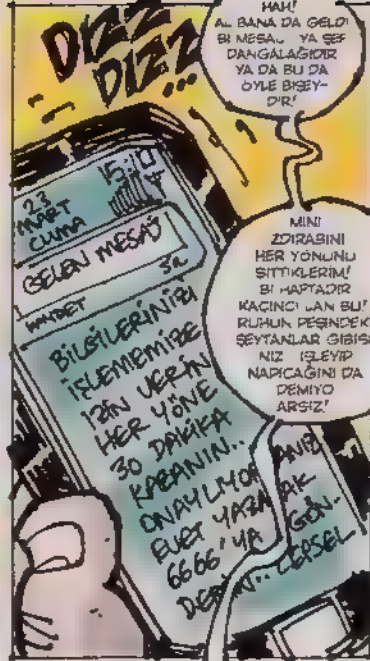 HAH!
AL BANA DA GELDİ
Bİ MESAJ... YA ŞEF
DANGALAĞIDIR
YA DA BU DA
ÖYLE BİŞEY-
DİR!
DIZZ
DIZZ...
MINI
ZDIRABINI
HER YÖNÜNÜ
SİTTİKLERİM!
Bİ HAFTADIR
KAÇINCI LAN BU!
RUHUN PEŞİNDEKİ
ŞEYTANLAR GİBİSİ
NİZ İŞLEYİP
NAPICAĞINI DA
DEMİYO
ARSIZ!
15:10
23
MART
CUMA
GELEN MESAJ
BİLGİLERİNİZİ
İŞLEMEMİZE
İZİN VERİN
HER YÖNE
30 DAKİKA
KAZANIN..
ONAYLIYOR
EVET YAZA
6666'YA GÖN-
CEPSEL